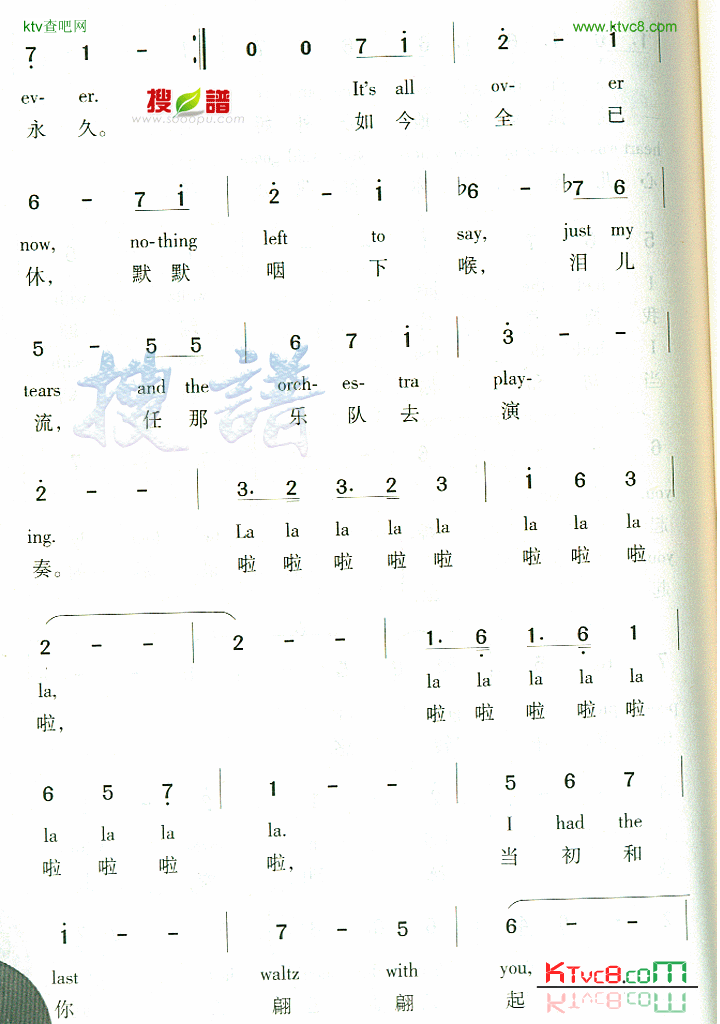 ktv查吧网 www.ktvc8.com
7 1 - :‖ 0 0 7 i | 2 - i |
ev- er. It's all ov- er
永 久。 如 今 全 已
搜 谱
www.sooopu.com
6 - 7 i | 2 - i | ♭6 - ♭7 6 |
now, no-thing left to say, just my
休, 默 默 咽 下 喉, 泪 儿
5 - 5 5 | 6 7 i | 3 - - |
tears and the orch- es- tra play-
流, 任 那 乐 队 去 演
搜譜
2 - - | 3. 2 3. 2 3 | i 6 3 |
ing. La la la la la la la la
奏。 啦 啦 啦 啦 啦 啦 啦 啦
2 - - | 2 - - | 1. 6 1. 6 1 |
la, la la la la la
啦, 啦 啦 啦 啦 啦
6 5 7 | 1 - - | 5 6 7 |
la la la la. I had the
啦 啦 啦 啦, 当 初 和
i - - | 7 - 5 | 6 - - |
last waltz with you,
你 翩 翩 起
KTvc8.com